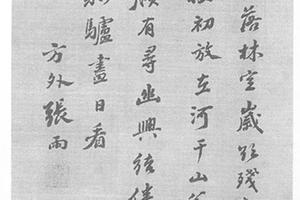 落林空歲欲殘
初放在河干山
有尋幽興
驢盡日看
方外張雨